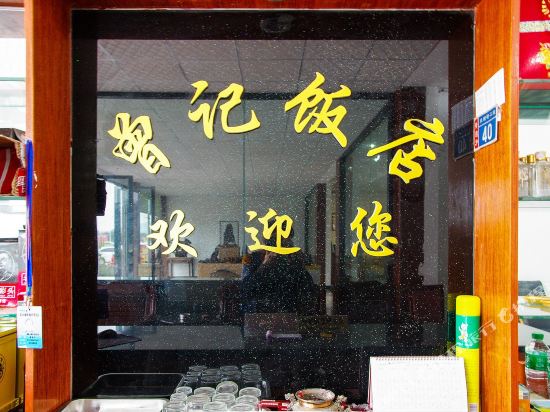 曾记饭店
欢迎您
40